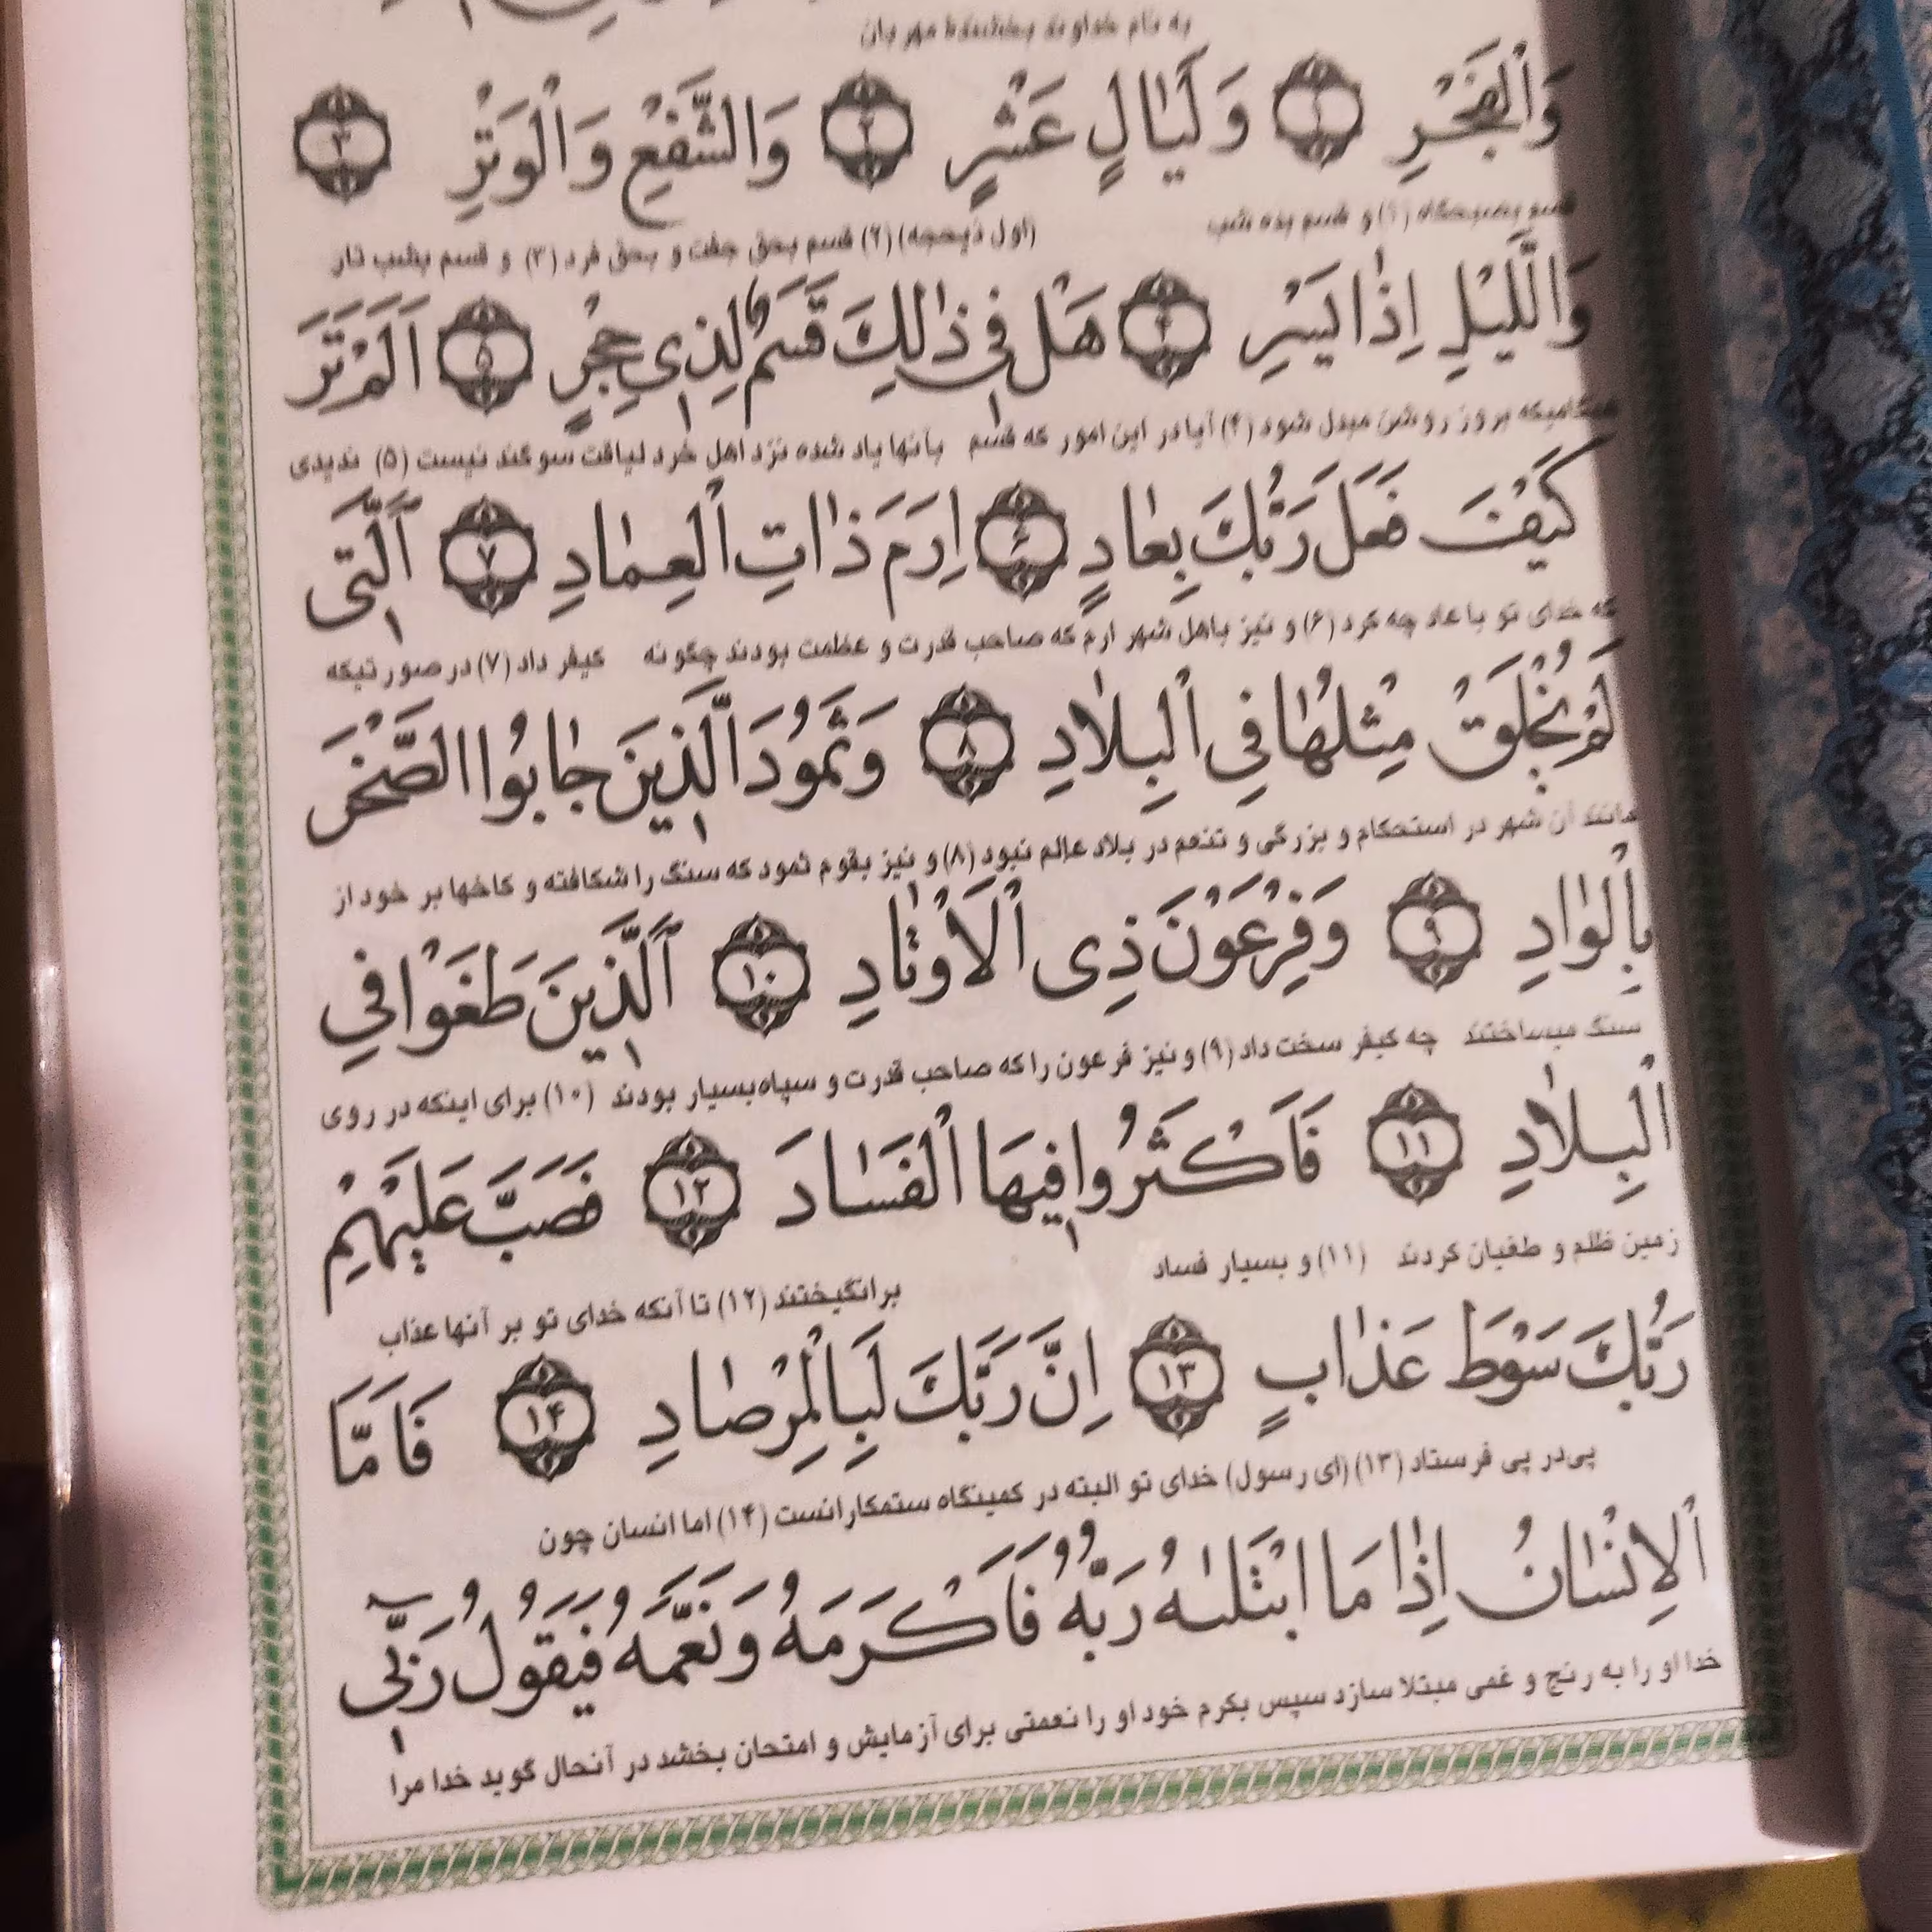 به نام خداوند بخشنده مهربان
وَٱلْفَجْرِ ﴿۱﴾ وَ لَيٰالٍ عَشْرٍ ﴿۲﴾ وَالشَّفْعِ وَٱلْوَتْرِ ﴿۳﴾
قسم بصبحگاه (۱) و قسم بده شب (اول ذیحجه) (۲) قسم بحق جفت و بحق فرد (۳) و قسم بشب تار
وَالَّليْلِ اِذٰا يَسْرِ ﴿۴﴾ هَلْ فى ذٰلِكَ قَسَمٌ لِذى حِجْرٍ ﴿۵﴾ اَلَمْ تَرَ
هنگامیکه بروز روشن مبدل شود (۴) آیا در این امور که قسم بآنها یاد شده نزد اهل خرد لیاقت سوگند نیست (۵) ندیدی
كَيْفَ فَعَلَ رَبُّكَ بِعٰادٍ ﴿۶﴾ اِرَمَ ذٰاتِ ٱلْعِمٰادِ ﴿۷﴾ ٱلَّتى
که خدای تو با عاد چه کرد (۶) و نیز باهل شهر ارم که صاحب قدرت و عظمت بودند چگونه کیفر داد (۷) در صورتیکه
لَمْ يُخْلَقْ مِثْلُهٰا فِى ٱلْبِلٰادِ ﴿۸﴾ وَ ثَمُودَ الَّذينَ جٰابُوا الصَّخْرَ
مانند آن شهر در استحکام و بزرگی و تنعم در بلاد عالم نبود (۸) و نیز بقوم ثمود که سنگ را شکافته و کاخها بر خود از
بِٱلْوٰادِ ﴿۹﴾ وَ فِرْعَوْنَ ذِى ٱلْاَوْتٰادِ ﴿۱۰﴾ ٱلَّذينَ طَغَوْا فِى
سنگ میساختند چه کیفر سخت داد (۹) و نیز فرعون را که صاحب قدرت و سپاه بسیار بودند (۱۰) برای اینکه در روی
ٱلْبِلٰادِ ﴿۱۱﴾ فَاَكْثَرُوا فيهَا ٱلْفَسٰادَ ﴿۱۲﴾ فَصَبَّ عَلَيْهِمْ
زمین ظلم و طغیان کردند (۱۱) و بسیار فساد برانگیختند (۱۲) تا آنکه خدای تو بر آنها عذاب
رَبُّكَ سَوْطَ عَذٰابٍ ﴿۱۳﴾ اِنَّ رَبَّكَ لَبِالْمِرْصٰادِ ﴿۱۴﴾ فَاَمَّا
پی‌در پی فرستاد (۱۳) (ای رسول) خدای تو البته در کمینگاه ستمکارانست (۱۴) اما انسان چون
ٱلْاِنْسٰانُ اِذٰا مَا ابْتَلٰىهُ رَبُّهُ فَاَكْرَمَهُ وَ نَعَّمَهُ فَيَقُولُ رَبّىٓ
خدا او را به رنج و غمی مبتلا سازد سپس بکرم خود او را نعمتی برای آزمایش و امتحان بخشد در آنحال گوید خدا مرا